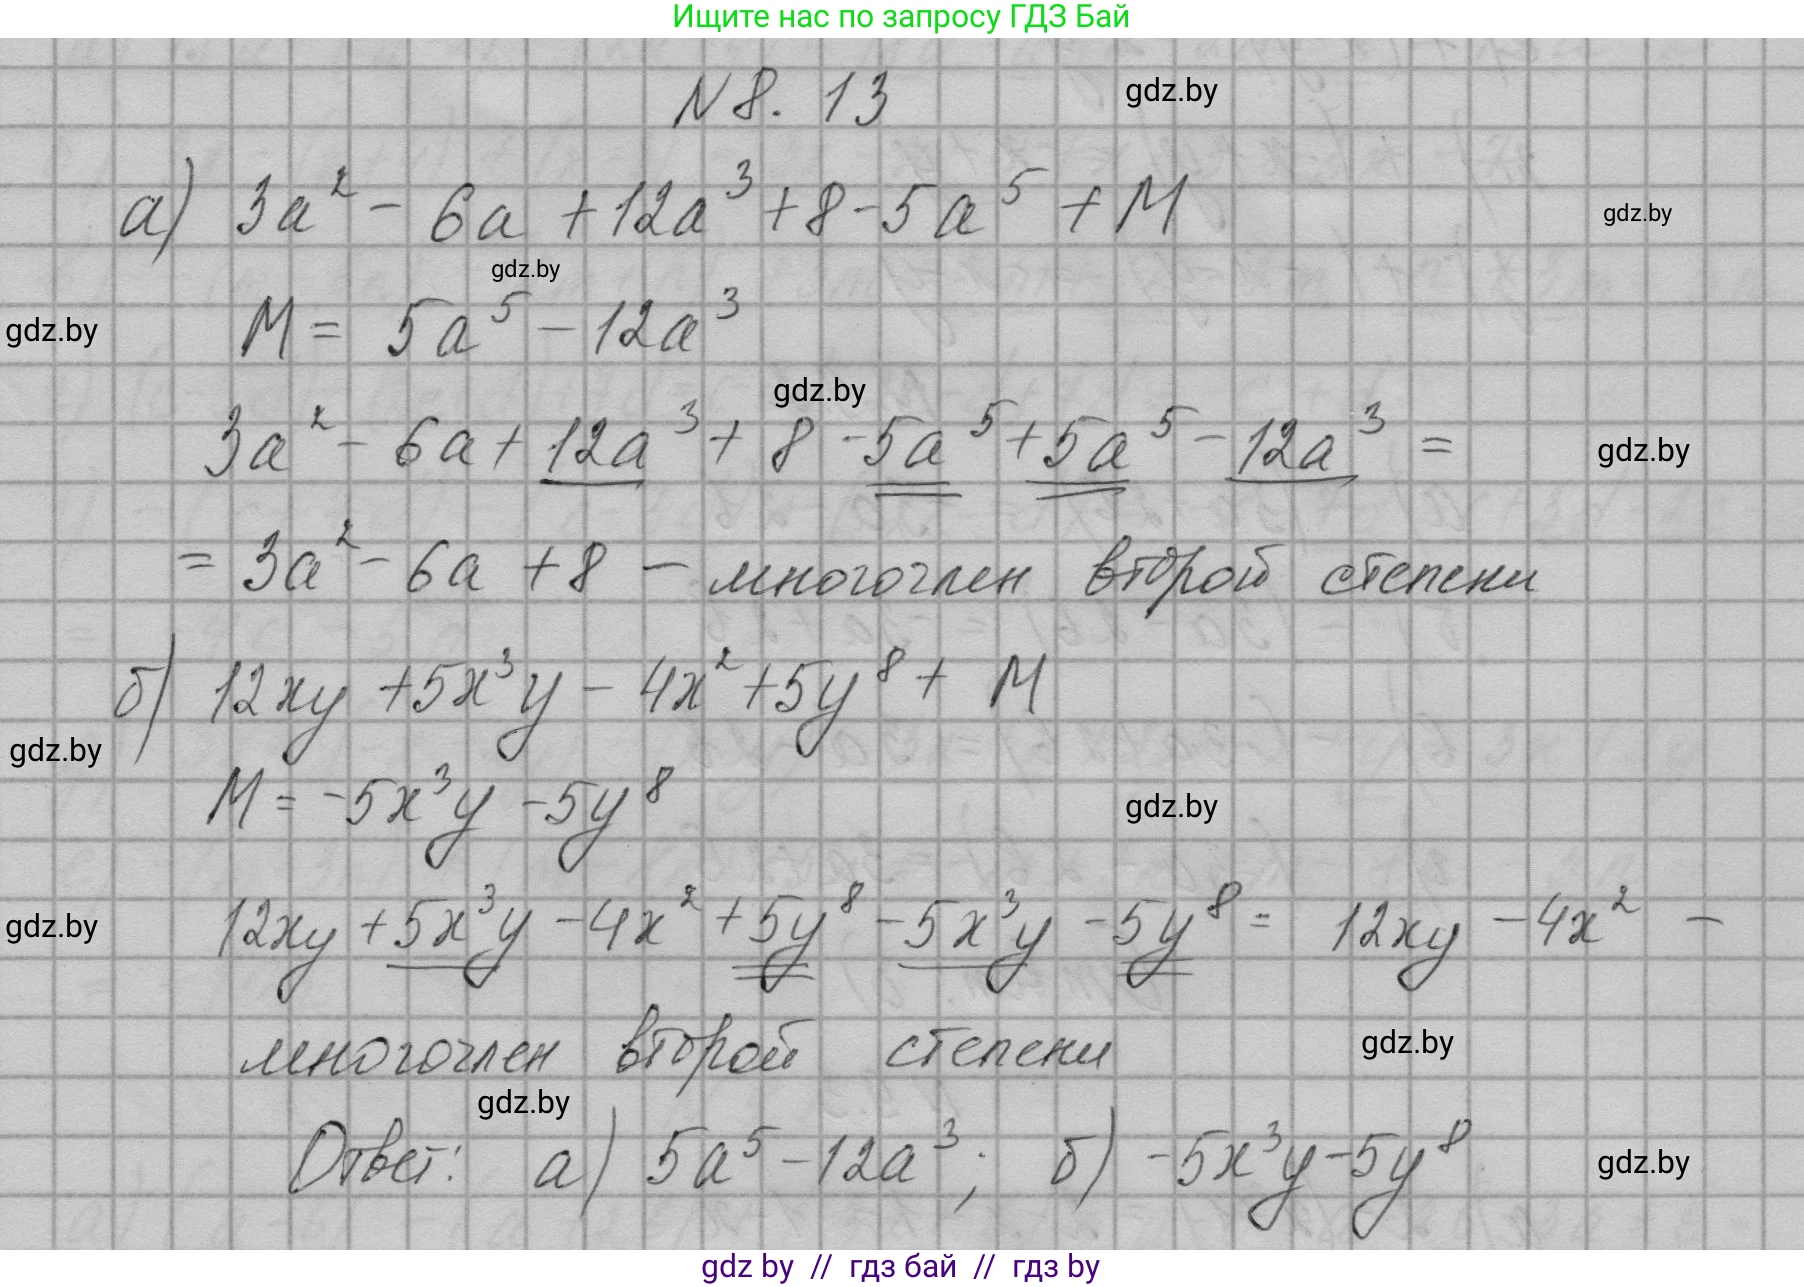 Ищите нас по запросу ГДЗ Бай
N 8. 13
gdz.by
а) 3a² - 6a + 12a³ + 8 - 5a⁵ + M
gdz.by
gdz.by
gdz.by
M = 5a⁵ - 12a³
gdz.by
3a² - 6a + 12a³ + 8 - 5a⁵ + 5a⁵ - 12a³ =
gdz.by
= 3a² - 6a + 8 - многочлен второй степени
б) 12xy + 5x³y - 4x² + 5y⁸ + M
gdz.by
M = -5x³y - 5y⁸
gdz.by
gdz.by
12xy + 5x³y - 4x² + 5y⁸ - 5x³y - 5y⁸ = 12xy - 4x² -
многочлен второй степени
gdz.by
gdz.by
Ответ: а) 5a⁵ - 12a³; б) -5x³y - 5y⁸
gdz.by
gdz by // гдз бай // гдз by